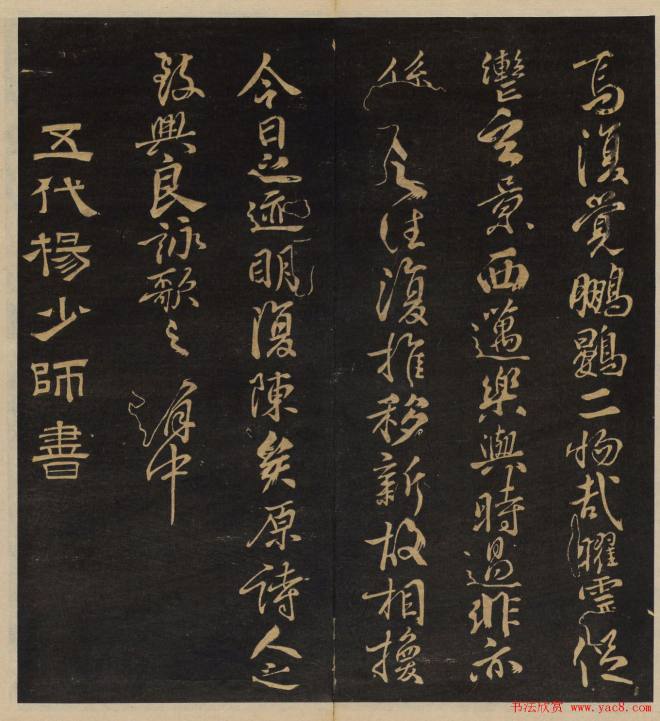 焉復覺鵬鷃二物哉曜靈
轡急景西邁樂與時過悲亦
係之往復推移新故相換
今日之迹明復陳矣原詩人之
致興良詠歌之有由
五代楊少師書
书法欣赏 www.yac8.com